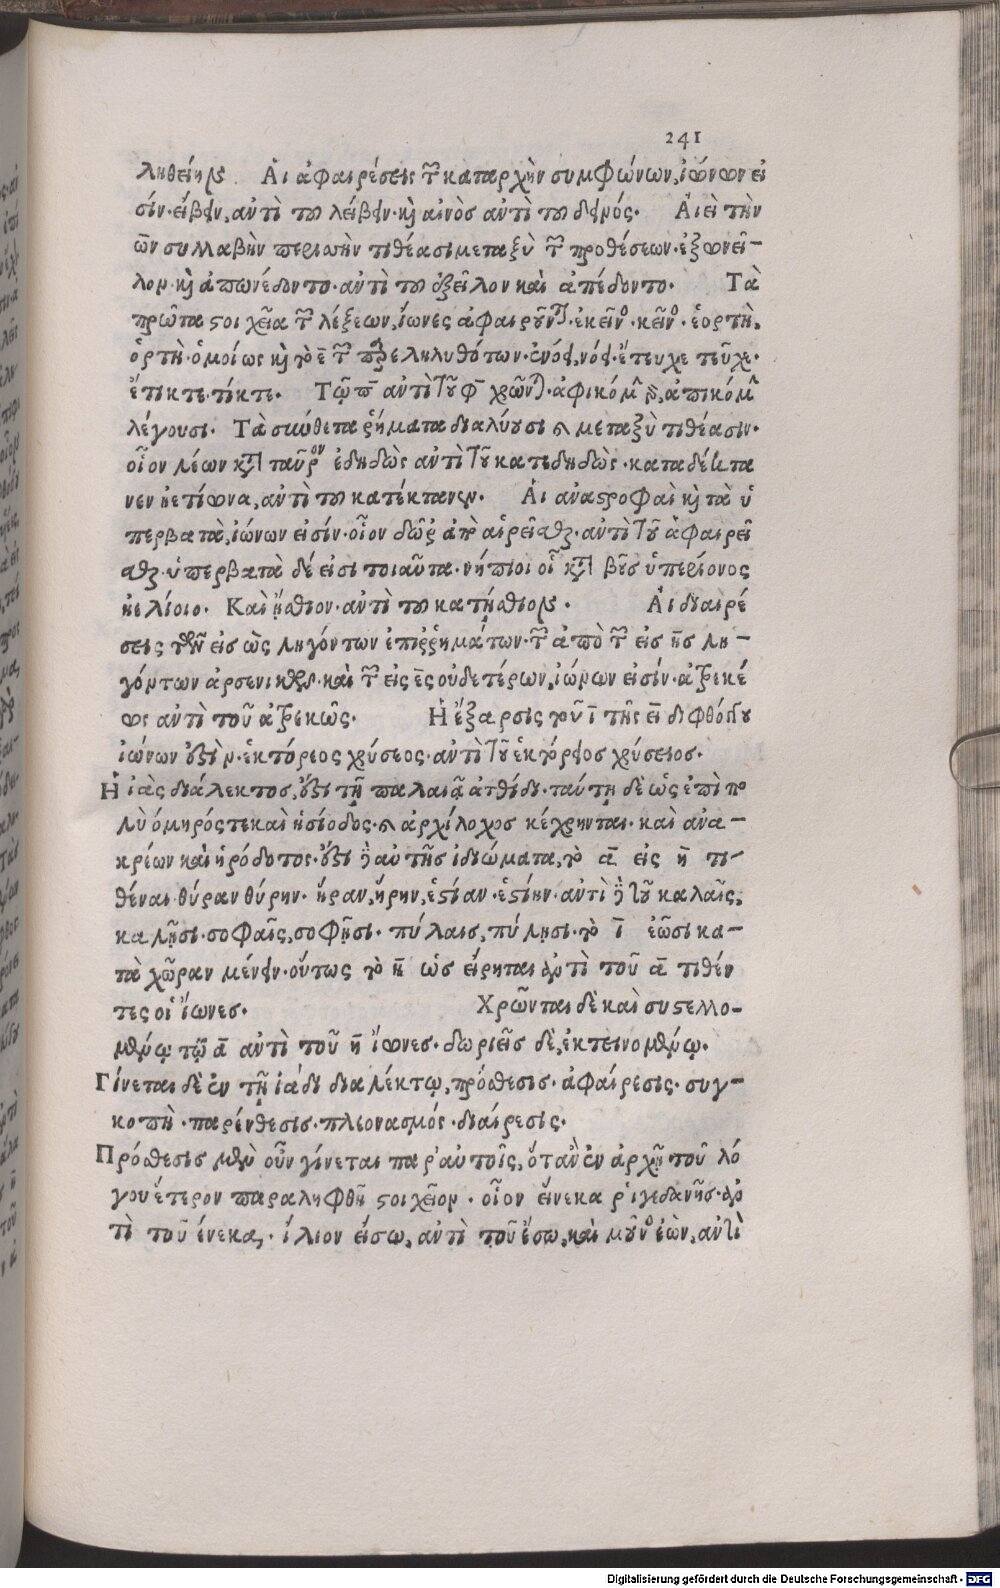 241
ληθείης Αἱ ἀφαιρέσεις τῶν καταρχὴν συμφώνων, ἰώνων εἰ
σίν· εἴβειν, αὐτὶ του λείβειν· καὶ αἰνὸς αὐτὶ του δεινός. Αἱ εἰ τὴν
ὦν συλλαβὴν περιττὴν τιθέασι μεταξὺ τῶν προθέσεων· ἐξωνεῖ-
λον· καὶ ἀπωνέδοντο· αὐτὶ του ἐξεῖλον καὶ ἀπέδοντο. Τὰ
πρῶτα στοιχεῖα τῶν λέξεων, ἴωνες ἀφαιροῦνται· ἐκεῖνος· κεῖνος· ἑορτὴ,
ὁρτὴ· ὁμοίως καὶ τὸ ε̄ τῶν παρεληλυθότων· ἐνόει, νόει· ἔτευχε τεῦχε·
ἔτικτε· τίκτε. Τῷ π̄ αὐτὶ τοῦ φ̄ χρῶνται· ἀφικόμην, ἀπικόμην
λέγουσι. Τὰ σύνθετα ῥήματα διαλύουσι καὶ μεταξὺ τιθέασιν·
οἷον λέων κατὰ ταῦρον ἐδηδὼς αὐτὶ τοῦ κατεδηδὼς· κατα δ' ἔκτα
νεν ἠετίωνα, αὐτὶ του κατέκτανεν. Αἱ αναστροφαὶ καὶ τὰ ὑ
περβατὰ, ἰώνων εἰσίν· οἷον ἀπὸ αἱρεῖσθαι· αὐτὶ τοῦ ἀφαιρεῖ
σθαι· ὑπερβατὰ δέ εἰσι τοιαῦτα· νήπιοι οἳ κατὰ βοῦς ὑπερίονος
ἠελίοιο. Καὶ ἤσθιον· αὐτὶ του κατήσθιον. Αἱ διαιρέ
σεις τῶν εἰς ὼς ληγόντων ἐπιρρημάτων· τῶν ἀπὸ τῶν εἰς ης λη-
γόντων ἀρσενικῶν· καὶ τῶν εἰς ες οὐδετέρων, ἰώνων εἰσίν· ἀτρεκέ
ως αὐτὶ τοῦ ἀτρεκῶς. Ἡ ἔξαρσις τοῦ ῑ τῆς ει διφθόγγου
ἰώνων ἐστὶν· ἑκτόρεος χρύσεος· αὐτὶ τοῦ ἑκτόρειος χρύσειος.
Ἡ ἰὰς διάλεκτος, ἐστὶ τῇ παλαιᾷ ἀτθίδι· ταύτῃ δὲ ὡς ἐπὶ πο
λὺ ὁμηρός τε καὶ ἡσίοδος· καὶ ἀρχίλοχος κέχρηνται· καὶ ανα-
κρέων καὶ ἡρόδοτος· ἐστὶ δὲ αὐτῆς ἰδιώματα, τὸ ᾱ εἰς η̄ τι-
θέναι· θύραν θύρην· ἥραν, ἥρην, ἑστίαν· ἑστίην· αὐτὶ δὲ τοῦ καλαῖς,
καλῇσι· σοφαῖς, σοφῇσι· πύλαις, πύλῃσι· τὸ ῑ ἐῶσι κα-
τὰ χῶραν μένειν· οὕτως τὸ η̄ ὡς εἴρηται ἀντὶ τοῦ ᾱ τιθέν
τες οἱ ἴωνες. Χρῶνται δὲ καὶ συστελλο-
μένῳ τῷ ᾱ αὐτὶ τοῦ η̄ ἴωνες· δωριεῖς δὲ, ἐκτεινομένῳ.
Γίνεται δὲ ἐν τῇ ἰάδι διαλέκτῳ, πρόσθεσις· ἀφαίρεσις· συγ-
κοπὴ· παρένθεσις· πλεονασμός· διαίρεσις.
Πρόσθεσις μὲν οὖν γίνεται παρ' αὐτοῖς, ὅταν ἐν ἀρχῇ τοῦ λό
γου ἕτερον παραληφθῇ στοιχεῖον· οἷον εἵνεκα ῥιγεδανῆς· ἀν
τὶ τοῦ ἕνεκα, · ἴλιον εἴσω, αὐτὶ τοῦ ἔσω, καὶ μοῦνος ἐὼν, αὐτὶ
Digitalisierung gefördert durch die Deutsche Forschungsgemeinschaft - DFG